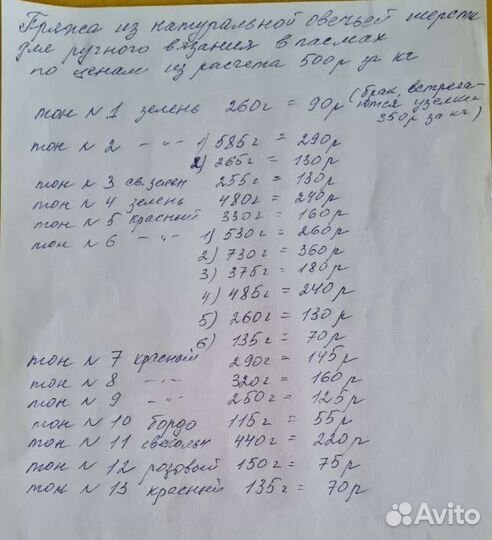 Пряжа из натуральной овечьей шерсти
для ручного вязания в пасмах
по ценам из расчета 500р за кг
тон №1 зелень 260г = 90р (брак, встреча-
ются узелки
350р за кг)
тон №2 -"- 1) 585г = 290р
2) 265г = 130р
тон №3 св.зелен 255г = 130р
тон №4 зелень 480г = 240р
тон №5 красный 330г = 160р
тон №6 -"- 1) 530г = 260р
2) 730г = 360р
3) 375г = 180р
4) 485г = 240р
5) 260г = 130р
6) 135г = 70р
тон №7 красный 290г = 145р
тон №8 -"- 320г = 160р
тон №9 -"- 250г = 125р
тон №10 бордо 115г = 55р
тон №11 свекольн 440г = 220р
тон №12 розовый 150г = 75р
тон №13 красный 135г = 70р
Avito